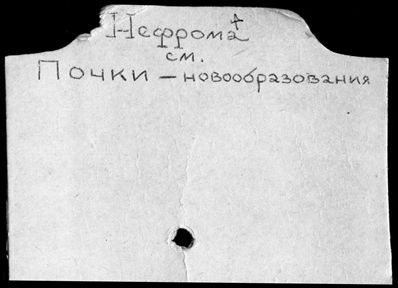 Нефрома+
см.
Почки – новообразования